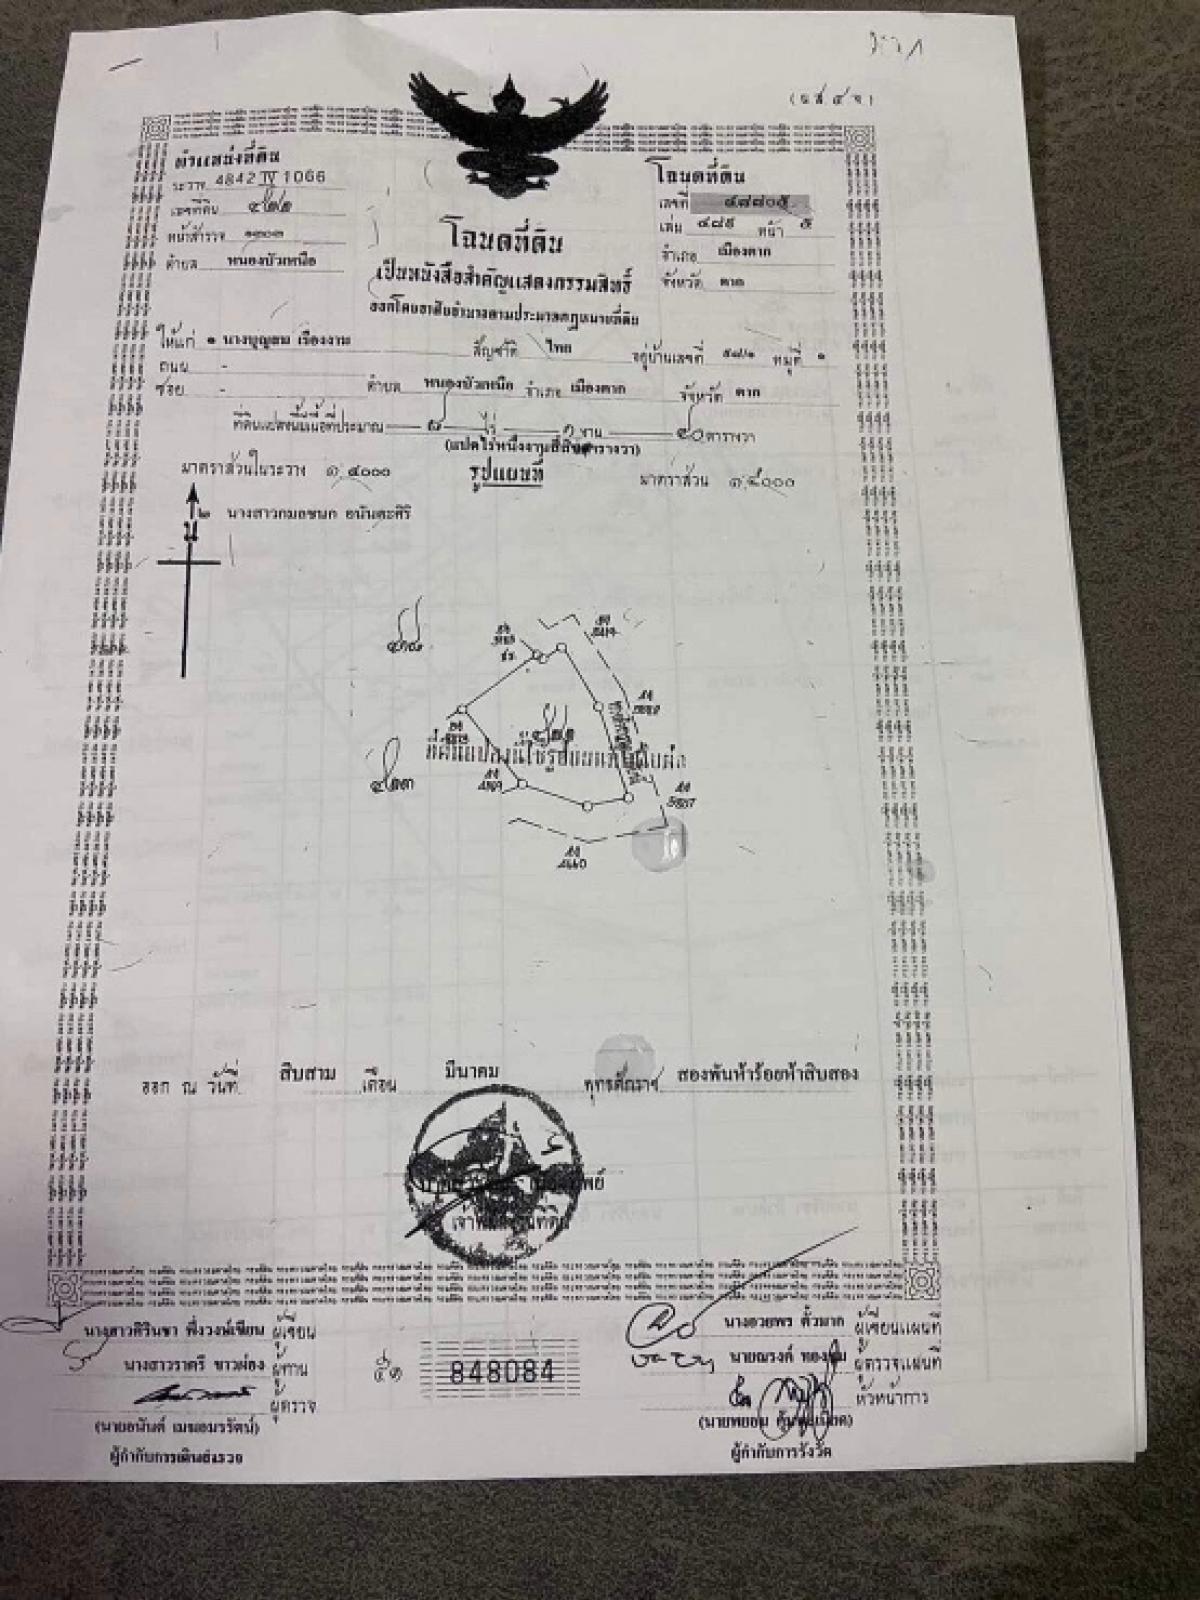 (น.ส. ๔ จ)
ตำแหน่งที่ดิน
ระวาง 4842 IV 1066
เลขที่ดิน ๔๒๒
หน้าสำรวจ
ตำบล หนองบัวเหนือ
โฉนดที่ดิน
เลขที่ ๔๘๘๐๕
เล่ม ๔๘๙ หน้า ๕
อำเภอ เมืองตาก
จังหวัด ตาก
โฉนดที่ดิน
เป็นหนังสือสำคัญแสดงกรรมสิทธิ์
ออกโดยอาศัยอำนาจตามประมวลกฎหมายที่ดิน
ให้แก่ ๑ นางบุญสม เรืองงาม สัญชาติ ไทย อยู่บ้านเลขที่ ๕๗/๑ หมู่ที่ ๑
ถนน -
ซอย - ตำบล หนองบัวเหนือ อำเภอ เมืองตาก จังหวัด ตาก
ที่ดินแปลงนี้มีเนื้อที่ประมาณ ๘ ไร่ ๑ งาน ๔๐ ตารางวา
(แปดไร่หนึ่งงานสี่สิบตารางวา)
มาตราส่วนในระวาง ๑:๔๐๐๐ รูปแผนที่ มาตราส่วน ๑:๔๐๐๐
น
๒ นางสาวกมลชนก อนันตะศิริ
๔๒๒
ที่ดินแปลงนี้ใช้รูปแผนที่
๔๒๓
ออก ณ วันที่ สิบสาม เดือน มีนาคม พุทธศักราช สองพันห้าร้อยห้าสิบสอง
เจ้าพนักงานที่ดิน
นางสาวศิรินชา พึ่งวงษ์เขียน ผู้เขียน
นางสาวราตรี ขาวผ่อง ผู้ทาน
ผู้ตรวจ
(นายอนันต์ เมฆอมรรัตน์)
ผู้กำกับการเดินสำรวจ
848084
นางอวยพร ตั้วมาก ผู้เขียนแผนที่
นายณรงค์ ผู้ตรวจแผนที่
หัวหน้าการ
ผู้กำกับการรังวัด